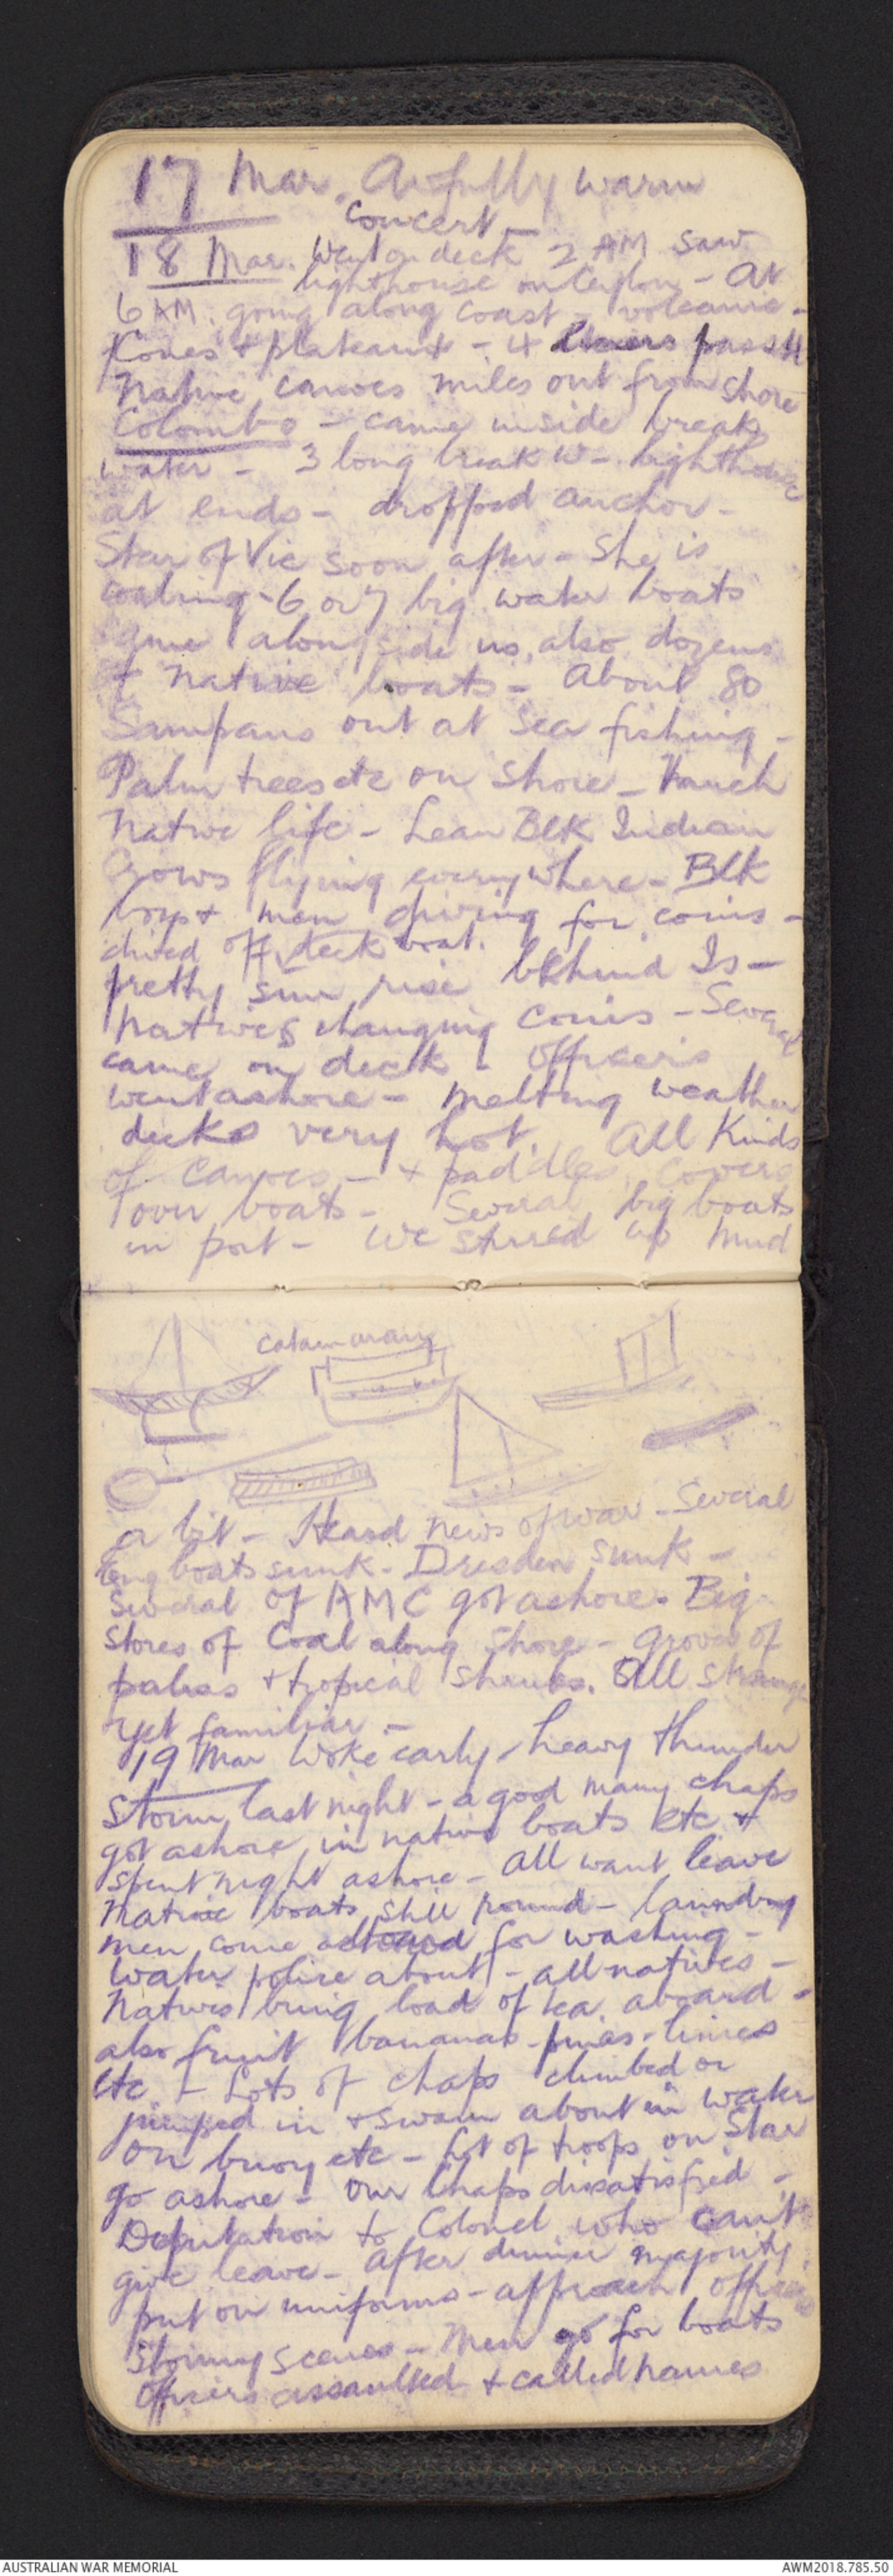 17 Mar. Awfully warm
Concert -
18 Mar. Went on deck 2 AM saw
lighthouse on Ceylon - At
6 AM. going along coast - volcanic -
Cones & plateaux - 4 liners pass'd
Native canoes miles out from shore
Colombo - came inside break
water - 3 long break W - lighthouse
at ends - dropped anchor -
Star of Vic soon after - She is
coaling - 6 or 7 big water boats
came along side us, also dozens
of native boats - About 80
Sampans out at sea fishing -
Palm trees etc on shore - Much
Native life - Lean Blk Indian
Crows flying everywhere - Blk
boys & men diving for coins -
dived off deck boat.
pretty sun rise behind Is -
Natives changing coins - Several
came on deck - Officers
went ashore - Melting weather
decks very hot. All Kinds
of canoes - & paddles, Covers
over boats - Several big boats
in port - We stirred up mud
catamarang
a bit - Heard news of war - Several
Eng boats sunk - Dresden sunk -
Several of AMC got ashore. Big
Stores of Coal along shore - groves of
palms & tropical shrubs. All strange
yet familiar -
19 Mar Woke early - heavy thunder
Storm last night - a good many chaps
got ashore in native boats etc &
spent night ashore - All want leave
Native boats still round - laundry
men come aboard for washing -
Water police about - all natives -
Natives bring load of tea aboard -
also fruit bananas - pines - limes
etc - Lots of chaps climbed or
jumped in & swam about in water
on buoy etc - Lot of troops on Star
go ashore - Our chaps dissatisfied -
Deputation to Colonel who can't
give leave - After dinner majority
put on uniforms - approach officers
Stormy scenes - Men go for boats
Officers assaulted & called names
AUSTRALIAN WAR MEMORIAL
AWM2018.785.50